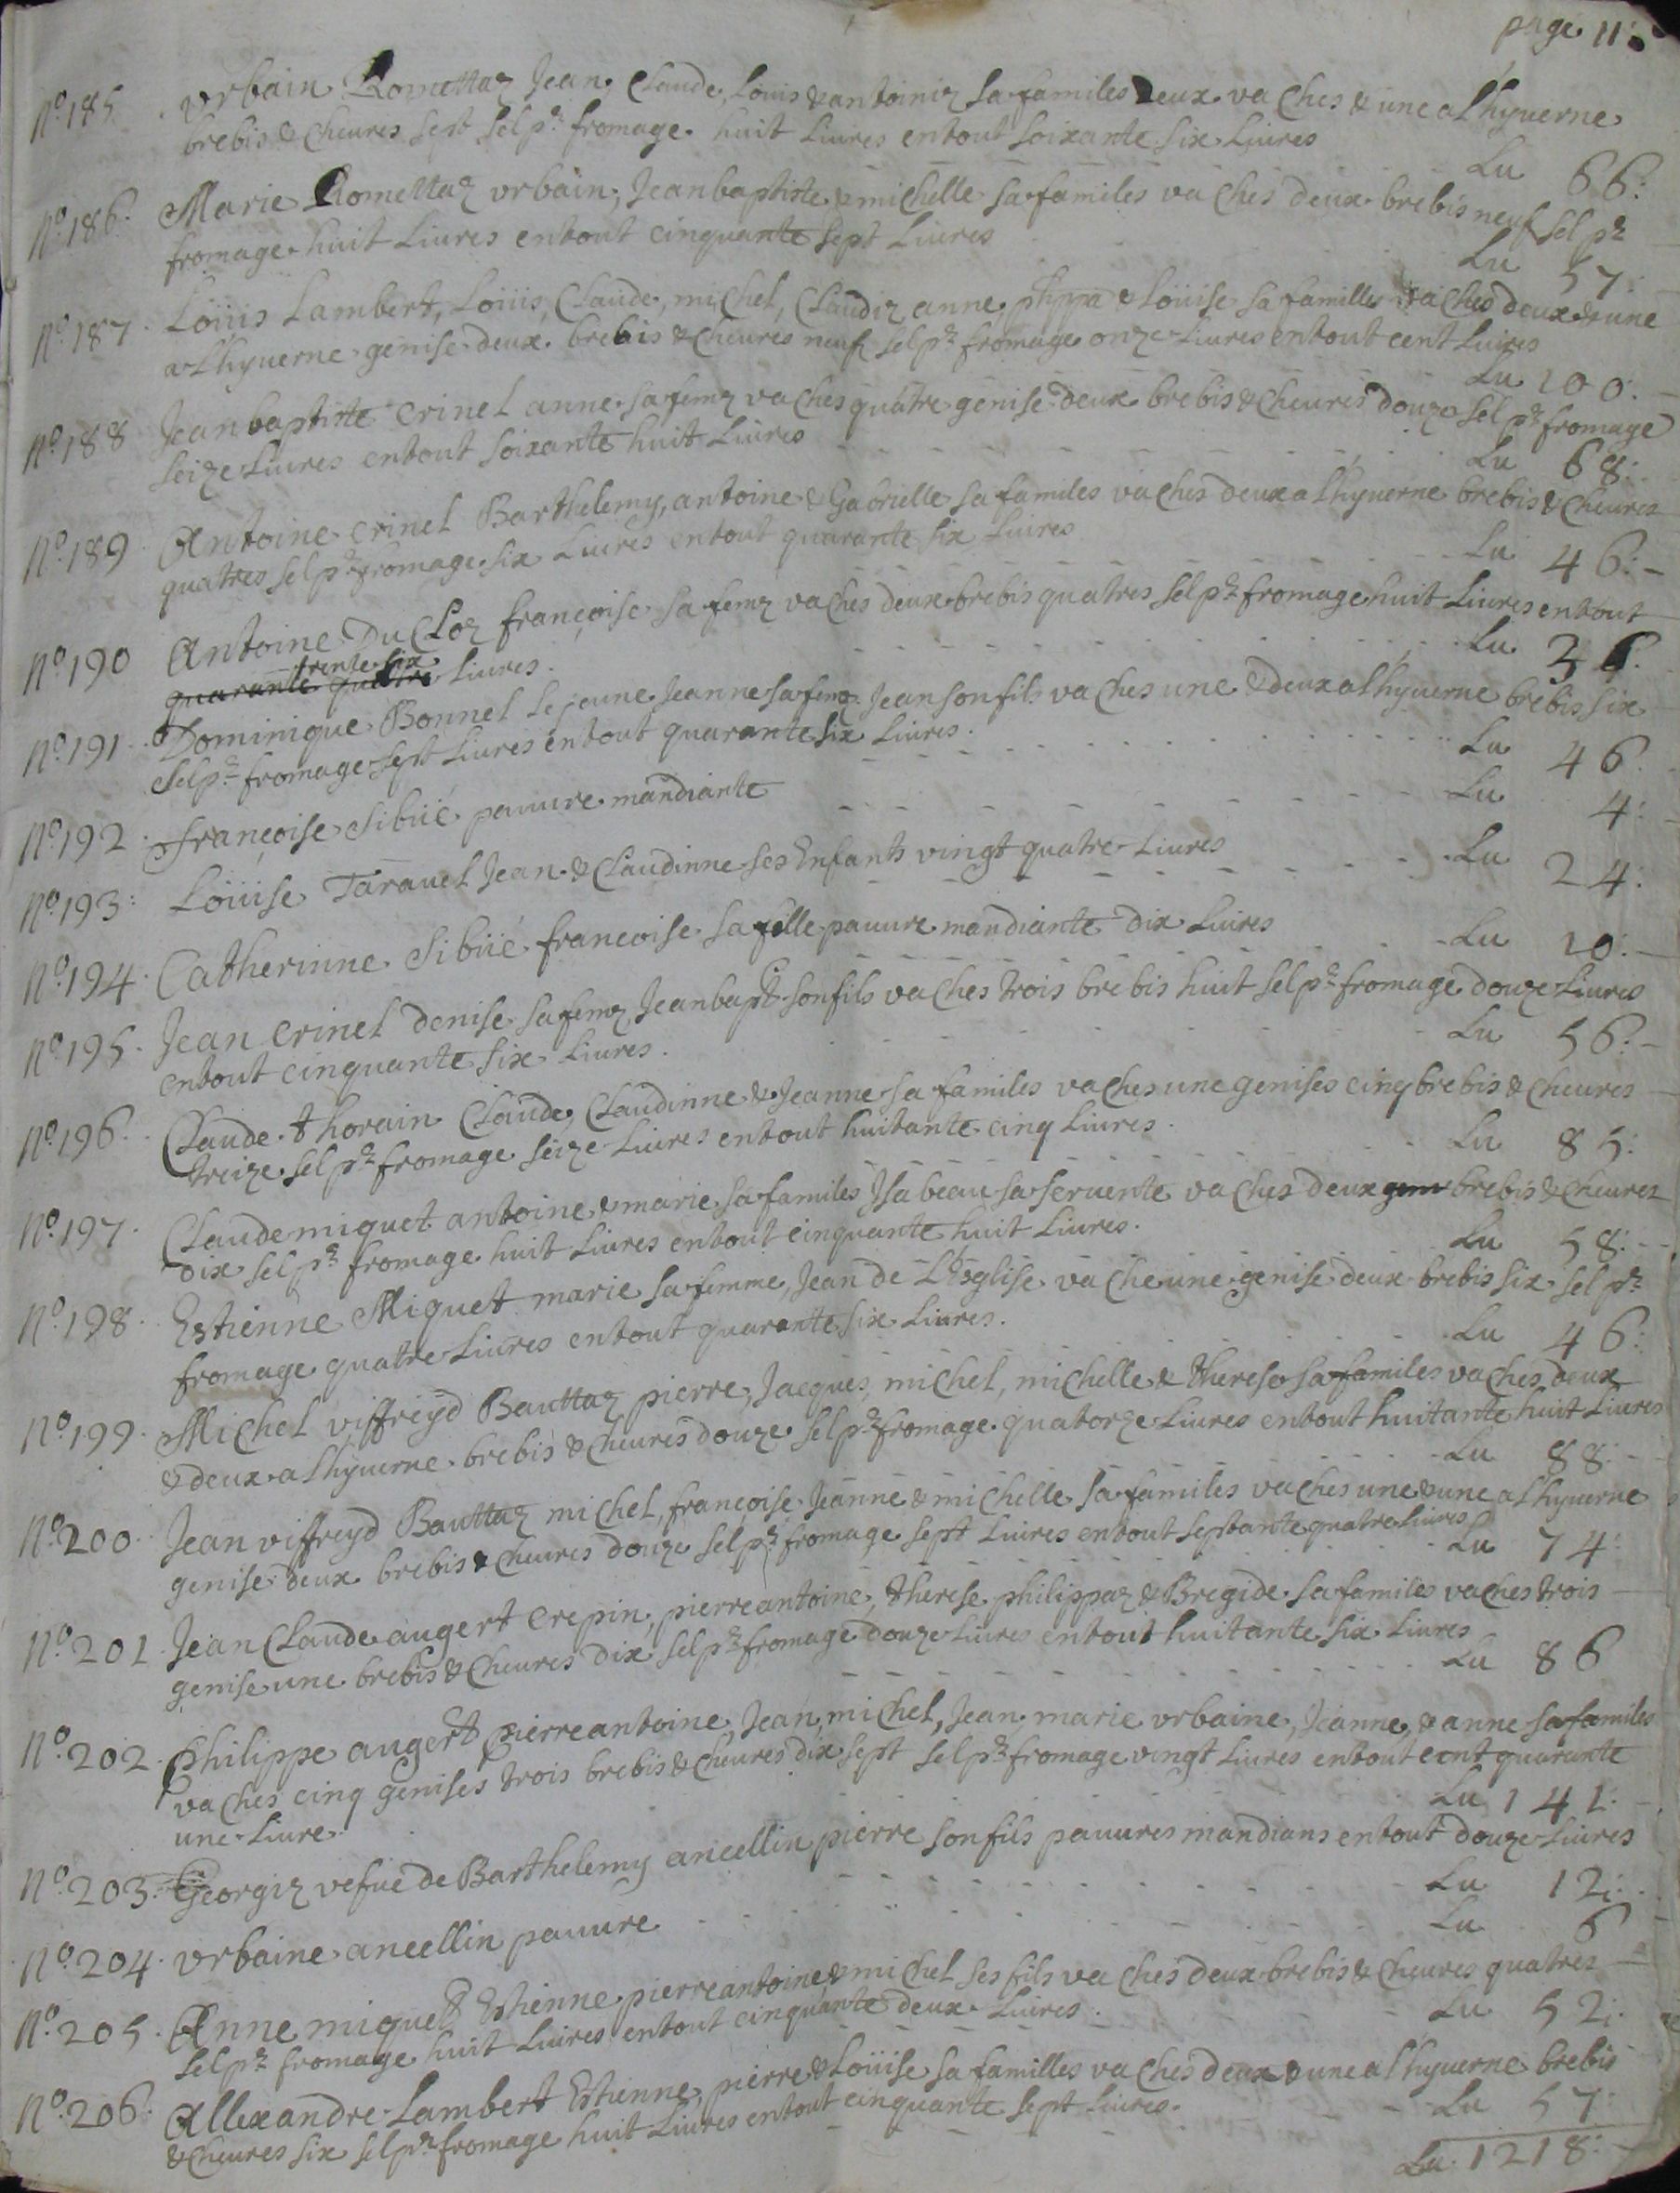 page 11:
No 185. Vrbain Romettaz Jean, Claude, Louis & antoiniz sa familes Deux vaches & une alhyuerne
brebis & cheures sept sel pr fromage huit Liures entout soixante six Liures
Lu 66:
No 186. Marie Romettaz vrbain, Jeanbaptiste & michelle sa familes vaches deux brebis neuf sel pr
fromage huit Liures entout cinquante sept Liures
Lu 57:
No 187. Loüis Lambert, Loüis, Claude, michel, Claudiz anne, phippa & Loüise sa familles vaches deux & une
alhyuerne genise deux brebis & cheures neuf sel pr fromage onze Liures entout cent Liures
Lu 100:
No 188 Jeanbaptiste crinel anne sa femz vaches quatre genise deux brebis & cheures douze sel pr fromage
seize Liures entout soixante huit Liures
Lu 68:
No 189. Antoine crinel Barthelemy, antoine & Gabrielle sa familes vaches deux alhyuerne brebis & cheures
quatres sel pr fromage six Liures entout quarante six Liures
Lu 46:
No 190 Antoine Du Cloz françoise sa femz vaches deux brebis quatres sel pr fromage huit Liures entout
trente six
quarante quattre Liures.
Lu 36.
No 191. Dominique Bonnel le jeune Jeanne sa femz Jean son fils vaches une & deux alhyuerne brebis six
sel pr fromage sept Liures entout quarante six Liures.
Lu 46.
No 192. françoise sibüé pauure mandiante
Lu 4:
No 193: Loüise Tarauel Jean & Claudinne ses Enfants vingt quatre Liures
Lu 24:
No 194. Catherinne sibüé francoise sa fille pauure mandiante dix Liures
Lu 10:
No 195. Jean crinel denise sa femz Jeanbapt son fils vaches trois brebis huit sel pr fromage douze Liures
entout cinquante six Liures.
Lu 56:
No 196. Claude thorain Claude, Claudinne & Jeanne sa familes vaches une genises cinq brebis & cheures
treize sel pr fromage seize Liures entout huitante cinq Liures.
Lu 85:
No 197. Claude miquet antoine & marie sa familes Jsabeau sa seruente vaches deux gen brebis & cheures
dix sel pr fromage huit Liures entout cinquante huit Liures.
Lu 58:
No 198. Estienne Miquet marie sa femme, Jean de L'Esglise vache une genise deux brebis six sel pr
fromage quatre Liures entout quarante six Liures.
Lu 46:
No 199. Michel viffreyd Bauttaz pierre, Jacques, michel, michelle & therese sa familes vaches deux
& deux alhyuerne brebis & cheures douze sel pr fromage quatorze Liures entout huitante huit Liures
Lu 88:
No 200. Jean viffreyd Bauttaz michel, françoise Jeanne & michelle sa familes vaches une & une alhyuerne
genise deux brebis & cheures douze sel pr fromage sept Liures entout septante quatre Liures
Lu 74:
No 201. Jean Claude augert crepin, pierre antoine, therese philippaz & Bregide sa familes vaches trois
genise une brebis & cheures dix sel pr fromage douze Liures entout huitante six Liures
Lu 86
No 202. Philippe augert pierre antoine, Jean, michel, Jean marie vrbaine, Jeanne & anne sa familes
vaches cinq genises trois brebis & cheures dix sept sel pr fromage vingt Liures entout cent quarante
une Liure.
Lu 141:
No 203. Georgiz vefue de Barthelemy ancellin pierre son fils pauures mandians entout douze Liures
Lu 12:
No 204. vrbaine ancellin pauure
Lu 6
No 205. Anne miquet Estienne pierre antoine & michel ses fils vaches deux brebis & cheures quatres
sel pr fromage huit Liures entout cinquante deux Liures.
Lu 52:
No 206. Allexandre Lambert Estienne, pierre & Loüise sa familles vaches deux & une alhyuerne brebis
& cheures six sel pr fromage huit Liures entout cinquante sept Liures.
Lu 57:
Lu 1218: